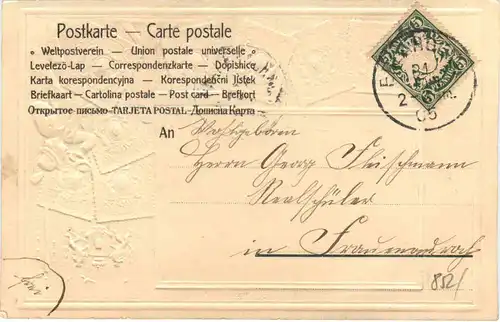 Postkarte — Carte postale
• Weltpostverein — Union postale universelle •
Levelező-Lap — Correspondenzkarte — Dopisnice
Karta korespondencyjna — Korespondenční lístek
Briefkaart — Cartolina postale — Post card — Brefkort
Открытое письмо — TARJETA POSTAL — Дописна Карта
An
Wohlgeboren
Herrn Georg Fleischmann
Realschüler
in
5
2
05
852/